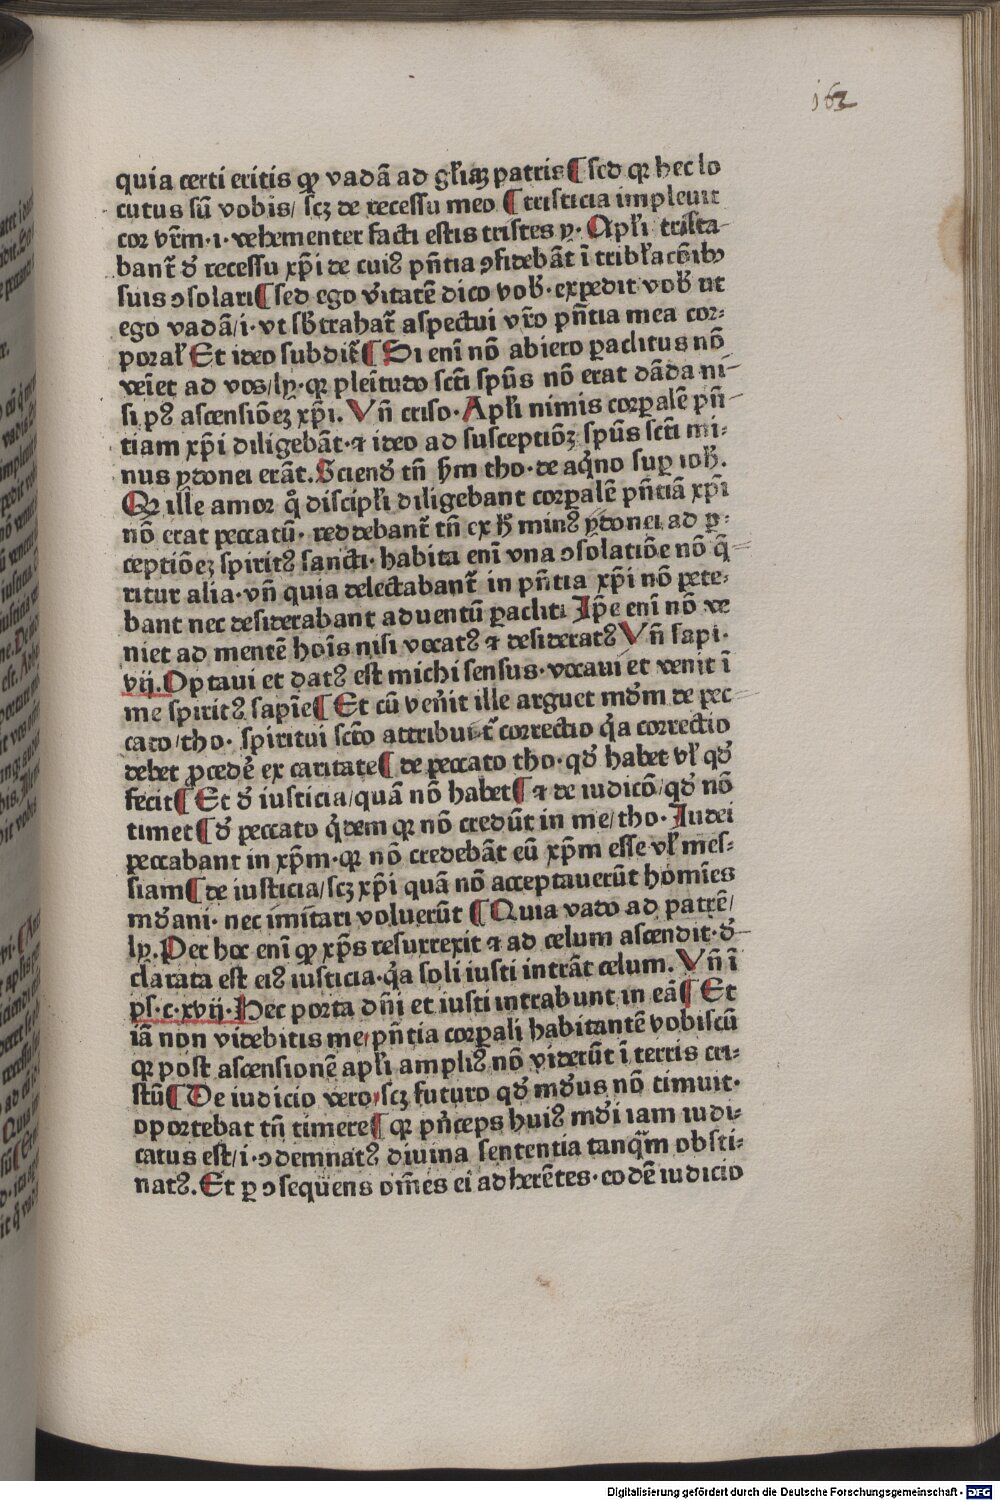 162
quia certi eritis qꝫ vadā ad gl'iaꝫ patris ¶ sed qꝛ hec lo
cutus sū vobis/ scꝫ de recessu meo ¶ tristicia impleuit
cor vr̄m·i· vehementer facti estis tristes ꝛ· Apl'i trista-
bant̄ đ recessu xp̄i de cuiꝰ pn̄tia ↄfidebāt ī tribl'acōibꝫ
suis ↄsolari ¶ sed ego v'itatē dico vob'· expedit vob' ut
ego vadā/i· vt sb'trahat̄ aspectui vr̄o pn̄tia mea cor⸗
poral' Et ideo subdit̄ ¶ Si enī nō abiero ꝑaclitus nō
veīet ad vos/ lꝛ· qꝛ pleītudo scti spūs nō erat dāda ni-
si pꝰ ascensiōeꝫ xp̄i. Vn̄ criso· Apl'i nimis corꝑalē pn̄-
tiam xp̄i diligebāt· ⁊ ideo ad susceptiōꝫ spūs scti mi⸗
nus ydonei erāt. Sciend' tn̄ ẜm tho· de aq̄no suꝑ ioh'.
Qꝛ ille amor q̄ discipl'i diligebant corꝑalē pn̄tiā xp̄i
nō erat peccatū· reddebant̄ tn̄ ex h' minꝰ ydonei ad ꝑ⸗
ceptiōeꝫ spiritꝰ sancti· habita enī vna ↄsolatiōe nō q̄⸗
ritur alia· vn̄ quia delectabant̄ in pn̄tia xp̄i nō pete⸗
bant nec desiderabant aduentū ꝑacliti Ip̄e enī nō ve
niet ad mentē hoīs nisi vocatꝰ ⁊ desideratꝰ Vn̄ sapi·
vij. Optaui et datꝰ est michi sensus· vocaui et venit ī
me spiritꝰ sapīe ¶ Et cū ven'it ille arguet md'm de pec⸗
cato/ tho· spiritui scto attribuit̄ correctio q̄a correctio
debet ꝓcedē ex caritate ¶ de peccato tho· qd' habet vl' qd'
fecit ¶ Et đ iusticia/ quā nō habet ¶ ⁊ de iudicō/ qd' nō
timet ¶ đ peccato q̄dem qꝛ nō credūt in me/ tho· Iudei
peccabant in xp̄m· qꝛ nō credebāt eū xp̄m esse vl' mes⸗
siam ¶ de iusticia/ scꝫ xp̄i quā nō acceptauerūt homīes
md'ani· nec imitari voluerūt ¶ Quia vado ad patrē/
lꝛ. Per hoc enī qꝫ xp̄s resurrexit ⁊ ad celum ascendit· đ-
clarata est eiꝰ iusticia· q̄a soli iusti intrāt celum. Vn̄ ī
ps· c· xvij· Hec porta dn̄i et iusti intrabunt in eā ¶ Et
iā non videbitis me/ pn̄tia corꝑali habitantē vobiscū
qꝛ post ascensionē apl'i ampliꝰ nō viderūt ī terris cri⸗
stū ¶ De iudicio vero/ scꝫ futuro qd' md'us nō timuit·
oportebat tn̄ timere ¶ qꝛ pn̄ceps huiꝰ md'i iam iudi⸗
catus est/ i· ↄdemnatꝰ diuina sententia tanq̄m obsti⸗
natꝰ. Et ꝑ ↄsequens om̄es ei adherētes· eodē iudicio
Digitalisierung gefördert durch die Deutsche Forschungsgemeinschaft - DFG